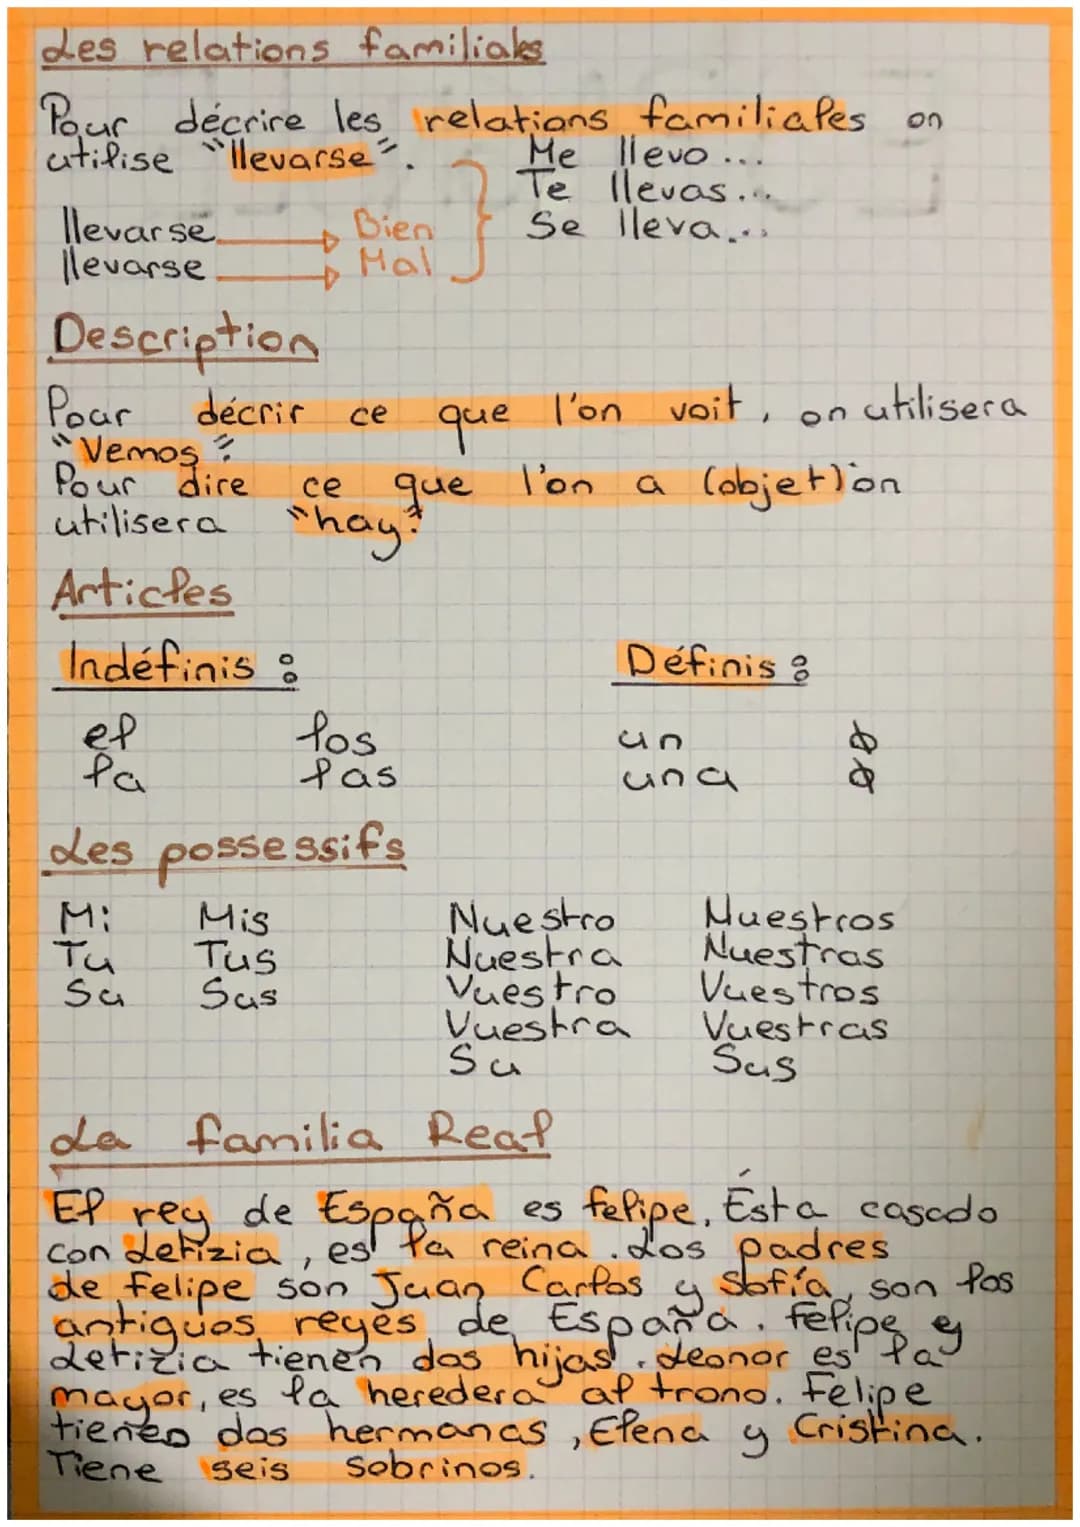 Les relations familiales
Pour décrire les relations familiales on
utilise "llevarse".
Me llevo ...
Te llevas...
Se lleva...
llevarse → Bien
llevarse → Mal
Description
Pour décrir ce que l'on voit, on utilisera
"Vemos".
Pour dire ce que l'on a (objet) on
utilisera "hay".
Articles
Indéfinis : Définis :
el los un ∅
la las una ∅
Les possessifs
Mi Mis Nuestro Nuestros
Tu Tus Nuestra Nuestras
Su Sus Vuestro Vuestros
Vuestra Vuestras
Su Sus
La familia Real
El rey de España es felipe. Ésta casado
con Letizia, es la reina. Los padres
de felipe son Juan Carlos y Sofía, son los
antiguos reyes de España. felipe y
Letizia tienen dos hijas. Leonor es la
mayor, es la heredera al trono. Felipe
tienes dos hermanas, Elena y Cristina.
Tiene seis sobrinos.